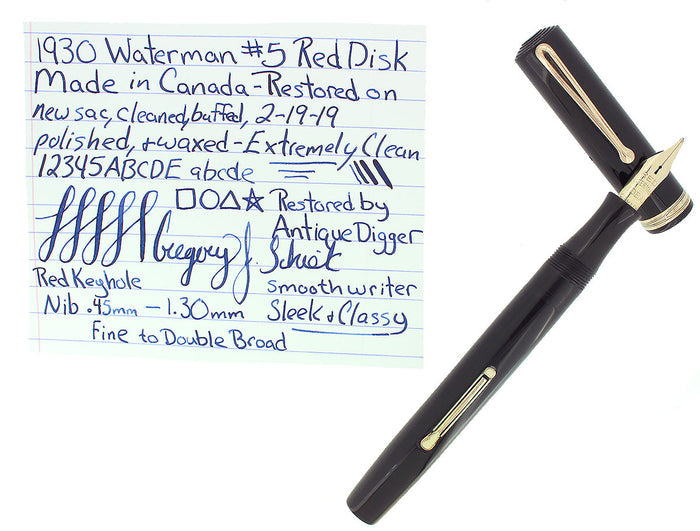 1930 Waterman #5 Red Disk
Made in Canada - Restored on
new sac, cleaned, buffed, 2-19-19
polished, + waxed - Extremely Clean
12345ABCDE abcde
Restored by
Antique Digger
Gregory J.
Red Keyhole
smooth writer
Nib .45mm - 1.30mm Sleek + Classy
Fine to Double Broad